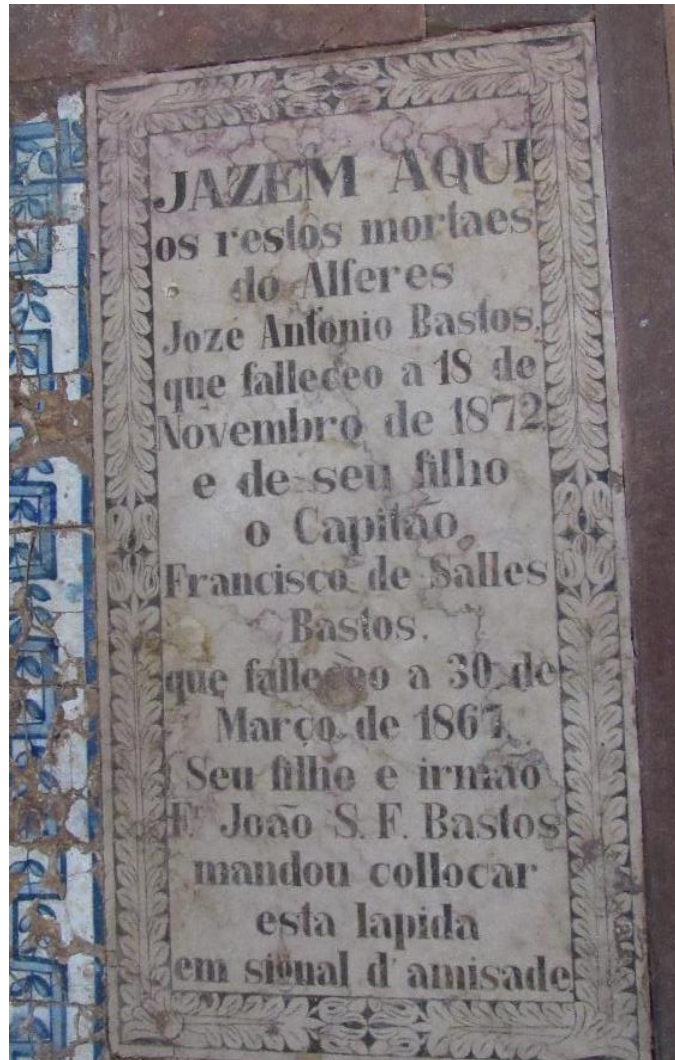 JAZEM AQUI
os restos mortaes
do Alferes
Joze Antonio Bastos,
que falleceo a 18 de
Novembro de 1872
e de seu filho
o Capitão
Francisco de Salles
Bastos,
que falleceo a 30 de
Março de 1867.
Seu filho e irmão
Fr. João S. F. Bastos
mandou collocar
esta lapida
em signal d'amisade